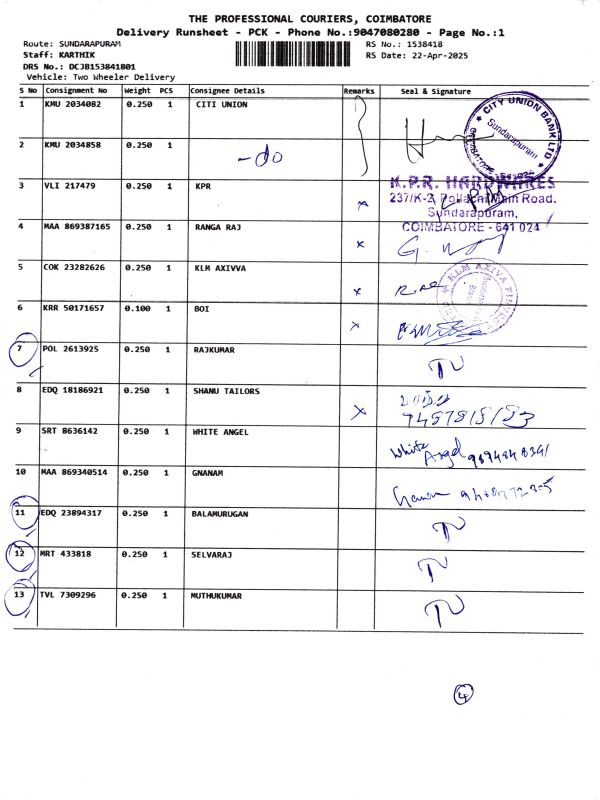 THE PROFESSIONAL COURIERS, COIMBATORE
Delivery Runsheet - PCK - Phone No.:9047080280 - Page No.:1
Route: SUNDARAPURAM RS No.: 1538418
Staff: KARTHIK RS Date: 22-Apr-2025
DRS No.: DCJB153841801
Vehicle: Two Wheeler Delivery
S No Consignment No Weight PCS Consignee Details Remarks Seal & Signature
1 KMU 2034082 0.250 1 CITI UNION
CITY UNION BANK LTD
Sundarapuram
2 KMU 2034858 0.250 1 -do
3 VLI 217479 0.250 1 KPR
K.P.R. HARDWARES
237/K-2, Pollachi Main Road.
Sundarapuram,
COIMBATORE - 641 024
4 MAA 869387165 0.250 1 RANGA RAJ
5 COK 23282626 0.250 1 KLM AXIVVA
KLM AXIVA
6 KRR 50171657 0.100 1 BOI
7 POL 2613925 0.250 1 RAJKUMAR
8 EDQ 18186921 0.250 1 SHANU TAILORS
9 SRT 8636142 0.250 1 WHITE ANGEL White Angel
10 MAA 869340514 0.250 1 GNANAM
11 EDQ 23894317 0.250 1 BALAMURUGAN
12 MRT 433818 0.250 1 SELVARAJ
13 TVL 7309296 0.250 1 MUTHUKUMAR
4